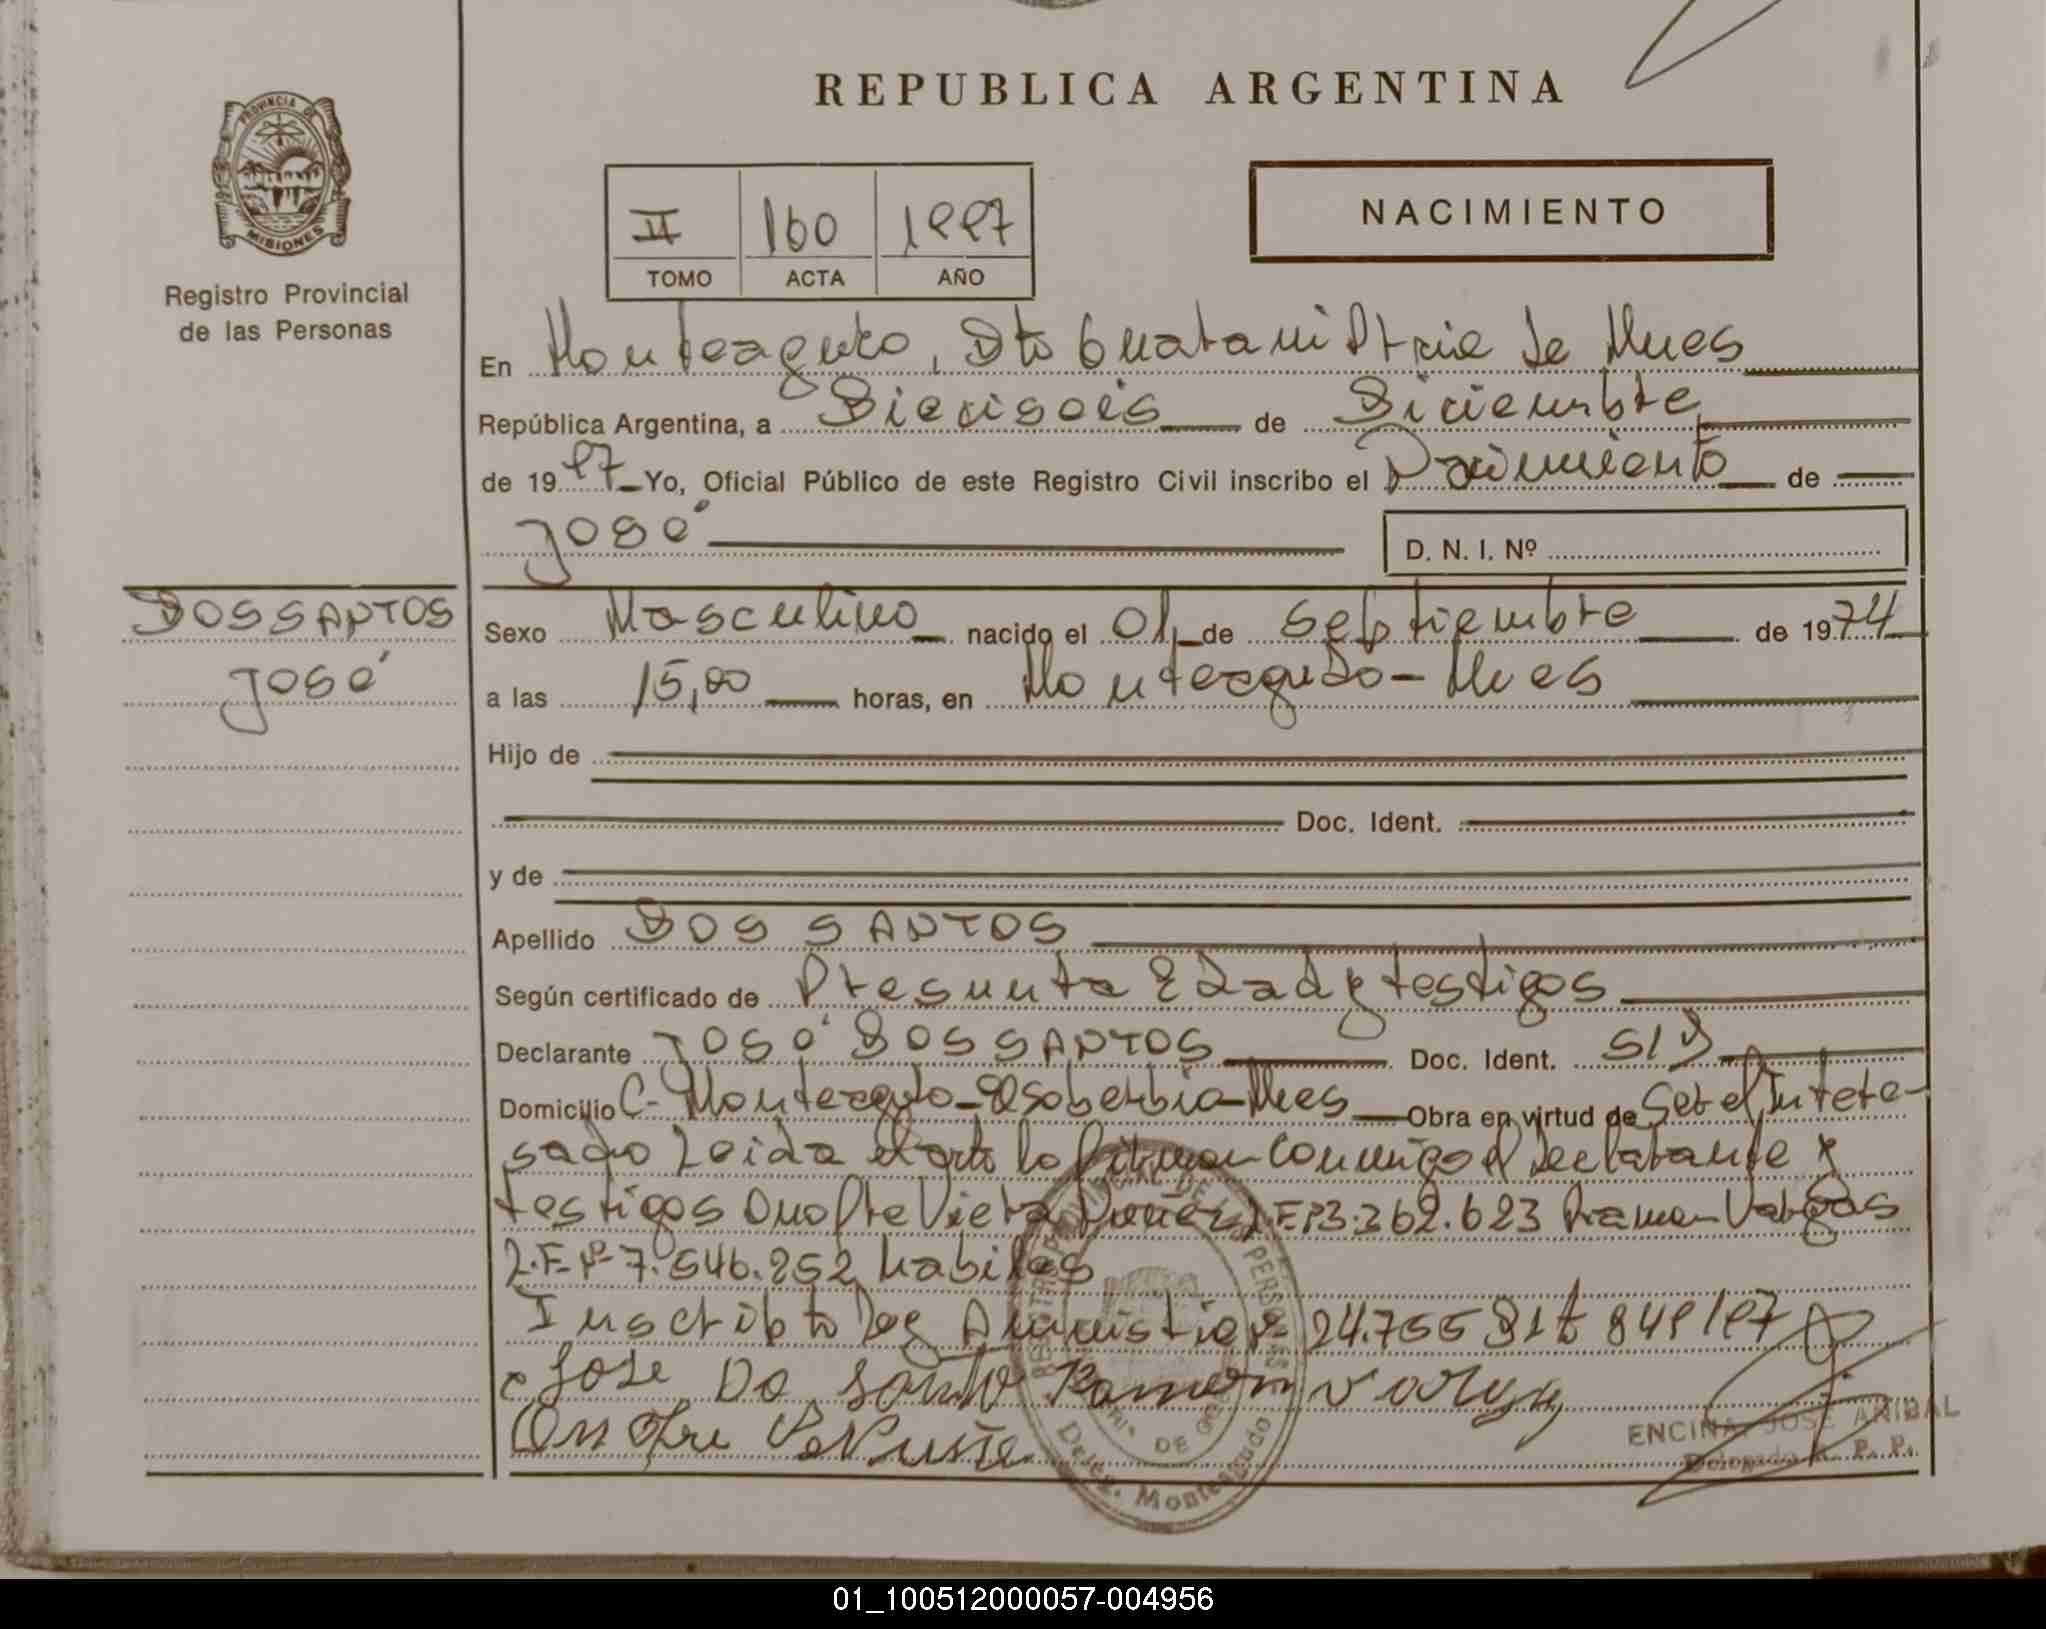 REPUBLICA ARGENTINA
PROVINCIA DE
MISIONES
Registro Provincial
de las Personas
II 160 1997
TOMO ACTA AÑO
NACIMIENTO
En Monteagudo, Dto Guarani Pcia de Mnes
República Argentina, a Dieciseis de Diciembre
de 1997 Yo, Oficial Público de este Registro Civil inscribo el Nacimiento de
José
D. N. I. Nº
DOS SANTOS
José
Sexo Masculino nacido el 01 de Septiembre de 1974
a las 15,00 horas, en Monteagudo - Mnes
Hijo de
Doc. Ident.
y de
Apellido DOS SANTOS
Según certificado de Presunta Edad y testigos
Declarante José DOS SANTOS Doc. Ident. S/D
Domicilio C- Monteagudo - El Soberbio - Mnes Obra en virtud de Ser el Intere-
sado Leida el acta la firman conmigo el declarante y
testigos Onofre Vieira L.E. Nº 3.362.623 Ramon Vargas
L.E. Nº 7.546.252 habiles
Inscripto Ley Amnistia Nº 24.755 849/97
José Do Santo Ramon Vargas
Onofre
ENCINA JOSE ANIBAL
Delegado R. P. P.
Deleg. Monteagudo
01_100512000057-004956